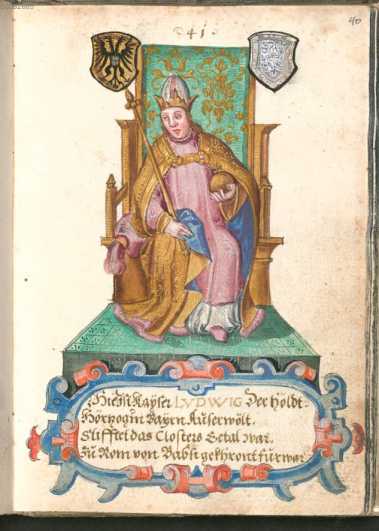 41.
40
Hie sitzt Kayser LVDWIG Der Holdt.
Hörzog in Bayrn Außerwölt.
Stifftet das Closter Eetal war.
Zu Rom von Babst gekhront fürwar